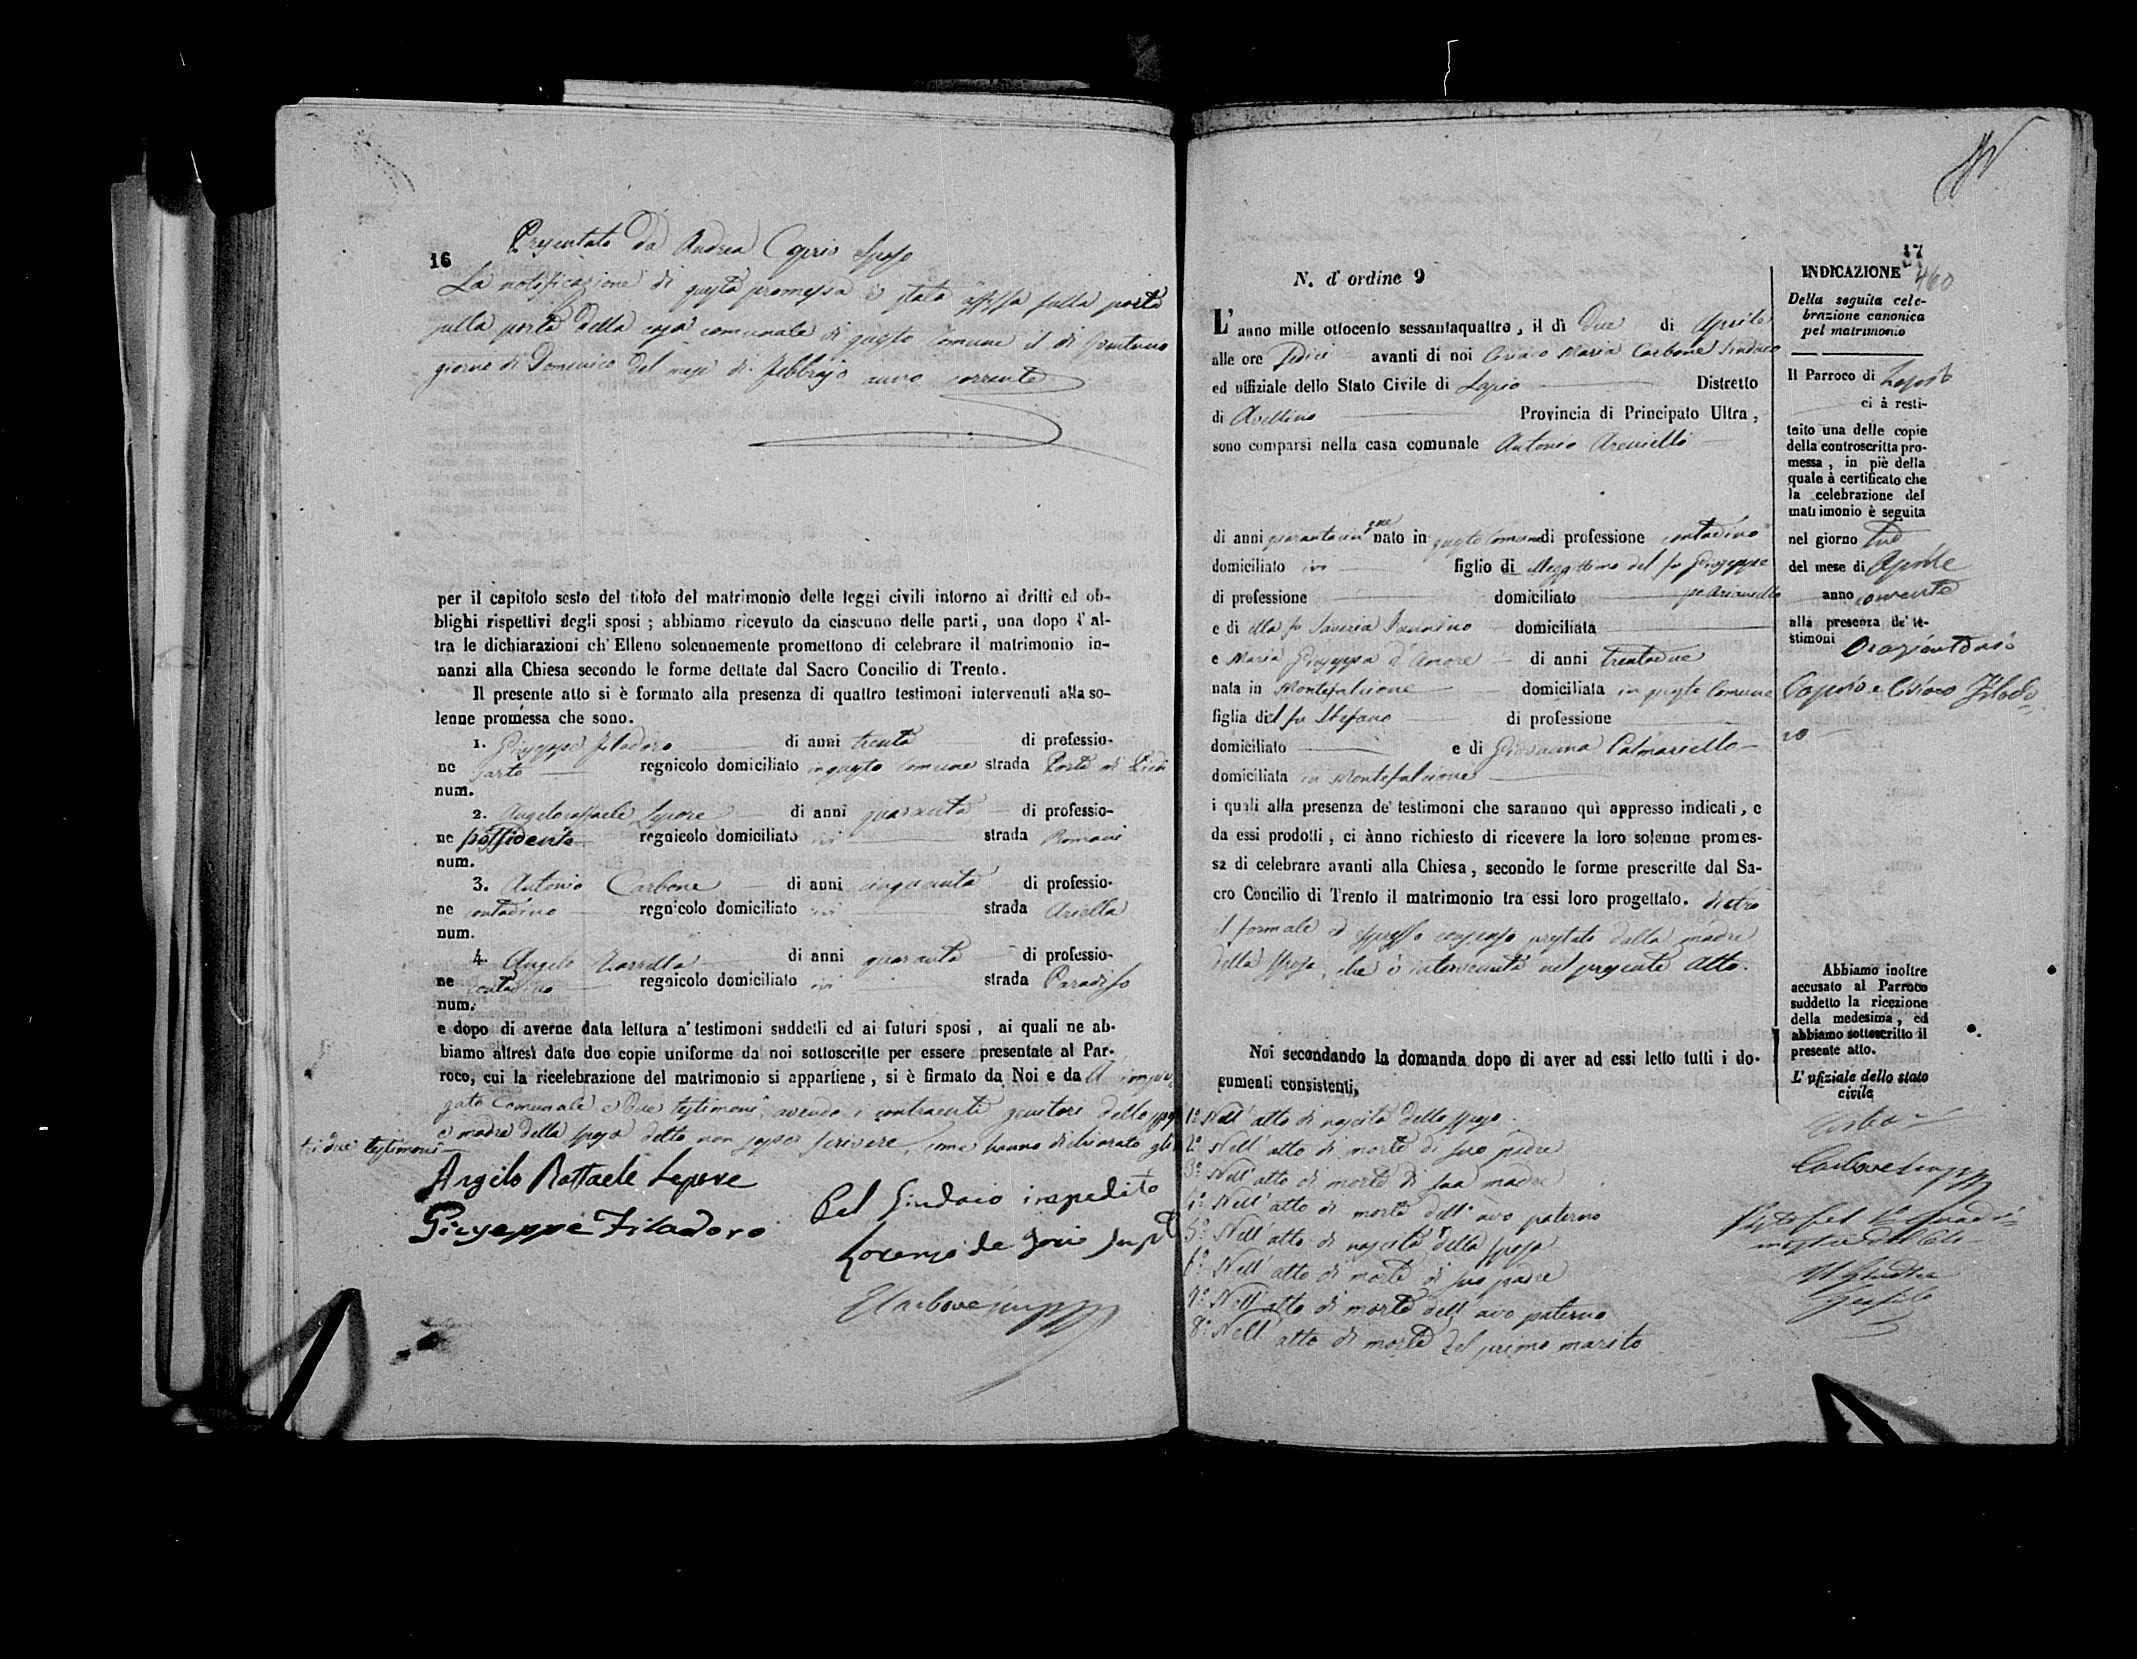 16
Presentato da Andrea Caprio sposo
La notificazione di questa promessa è stata affissa sulla porta
sulla porta della casa comunale di questo Comune il di
giorno di Domenica del mese di febbrajo anno corrente
per il capitolo sesto del titolo del matrimonio delle leggi civili intorno ai dritti ed ob-
blighi rispettivi degli sposi ; abbiamo ricevuto da ciascuno delle parti, una dopo l'al-
tra le dichiarazioni ch'Elleno solennemente promettono di celebrare il matrimonio in-
nanzi alla Chiesa secondo le forme dettate dal Sacro Concilio di Trento.
Il presente atto si è formato alla presenza di quattro testimoni intervenuti alla so-
lenne promessa che sono.
1. Giuseppe Filadoro di anni trenta di professio-
ne sarto regnicolo domiciliato in questo Comune strada Porta di
num.
2. Angeloraffaele Lepore di anni quaranta di professio-
ne possidente regnicolo domiciliato ivi strada Romani
num.
3. Antonio Carbone di anni cinquanta di professio-
ne contadino regnicolo domiciliato ivi strada Ariella
num.
4. Angelo Zarrella di anni quaranta di professio-
ne contadino regnicolo domiciliato ivi strada Paradiso
num.
e dopo di averne data lettura a' testimoni suddetti ed ai futuri sposi, ai quali ne ab-
biamo altresì date due copie uniforme da noi sottoscritte per essere presentate al Par-
roco, cui la ricelebrazione del matrimonio si appartiene, si è firmato da Noi e da
Comunale e due testimoni, avendo i contraenti genitori dello sposo
e madre della sposa detto non saper scrivere, come hanno dichiarato gli
tri due testimoni
Angelo Raffaele Lepore
Giuseppe Filadoro
Pel Sindaco impedito
Lorenzo de
17
460
N. d'ordine 9
L'anno mille ottocento sessantaquattro, il dì due di Aprile
alle ore sedici avanti di noi Ciriaco Maria Carbone Sindaco
ed uffiziale dello Stato Civile di Lapio Distretto
di Avellino Provincia di Principato Ultra,
sono comparsi nella casa comunale Antonio Areniello
di anni quarantacinque nato in questo Comune di professione contadino
domiciliato ivi figlio di del fu Giuseppe
di professione domiciliato
e di della fu Saveria domiciliata
e Maria Giuseppa d'Amore di anni trentadue
nata in Montefalcione domiciliata in questo Comune
figlia del fu Stefano di professione
domiciliato e di Giovanna Palmariello
domiciliata in Montefalcione
i quali alla presenza de' testimoni che saranno quì appresso indicati, e
da essi prodotti, ci ànno richiesto di ricevere la loro solenne promes-
sa di celebrare avanti alla Chiesa, secondo le forme prescritte dal Sa-
cro Concilio di Trento il matrimonio tra essi loro progettato. dietro
il formale ed espresso consenso prestato dalla madre
della sposa, che è intervenuta nel presente Atto.
Noi secondando la domanda dopo di aver ad essi letto tutti i do-
cumenti consistenti,
1° Nell'atto di nascita dello sposo.
2° Nell'atto di morte di suo padre
3° Nell'atto di morte di sua madre
4° Nell'atto di morte dell'avo paterno
5° Nell'atto di nascita della sposa
6° Nell'atto di morte di suo padre
7° Nell'atto di morte dell'avo paterno
8° Nell'atto di morte del primo marito
INDICAZIONE
Della seguita cele-
brazione canonica
pel matrimonio
Il Parroco di Lapio
ci à resti-
tuito una delle copie
della controscritta pro-
messa, in piè della
quale à certificato che
la celebrazione del
matrimonio è seguita
nel giorno due
del mese di Aprile
anno corrente
alla presenza de' te-
stimoni Oraziantonio
Caprio e Ciriaco Filado-
ro
Abbiamo inoltre
accusato al Parroco
suddetto la ricezione
della medesima, ed
abbiamo sottoscritto il
presente atto.
L'ufiziale dello stato
civile